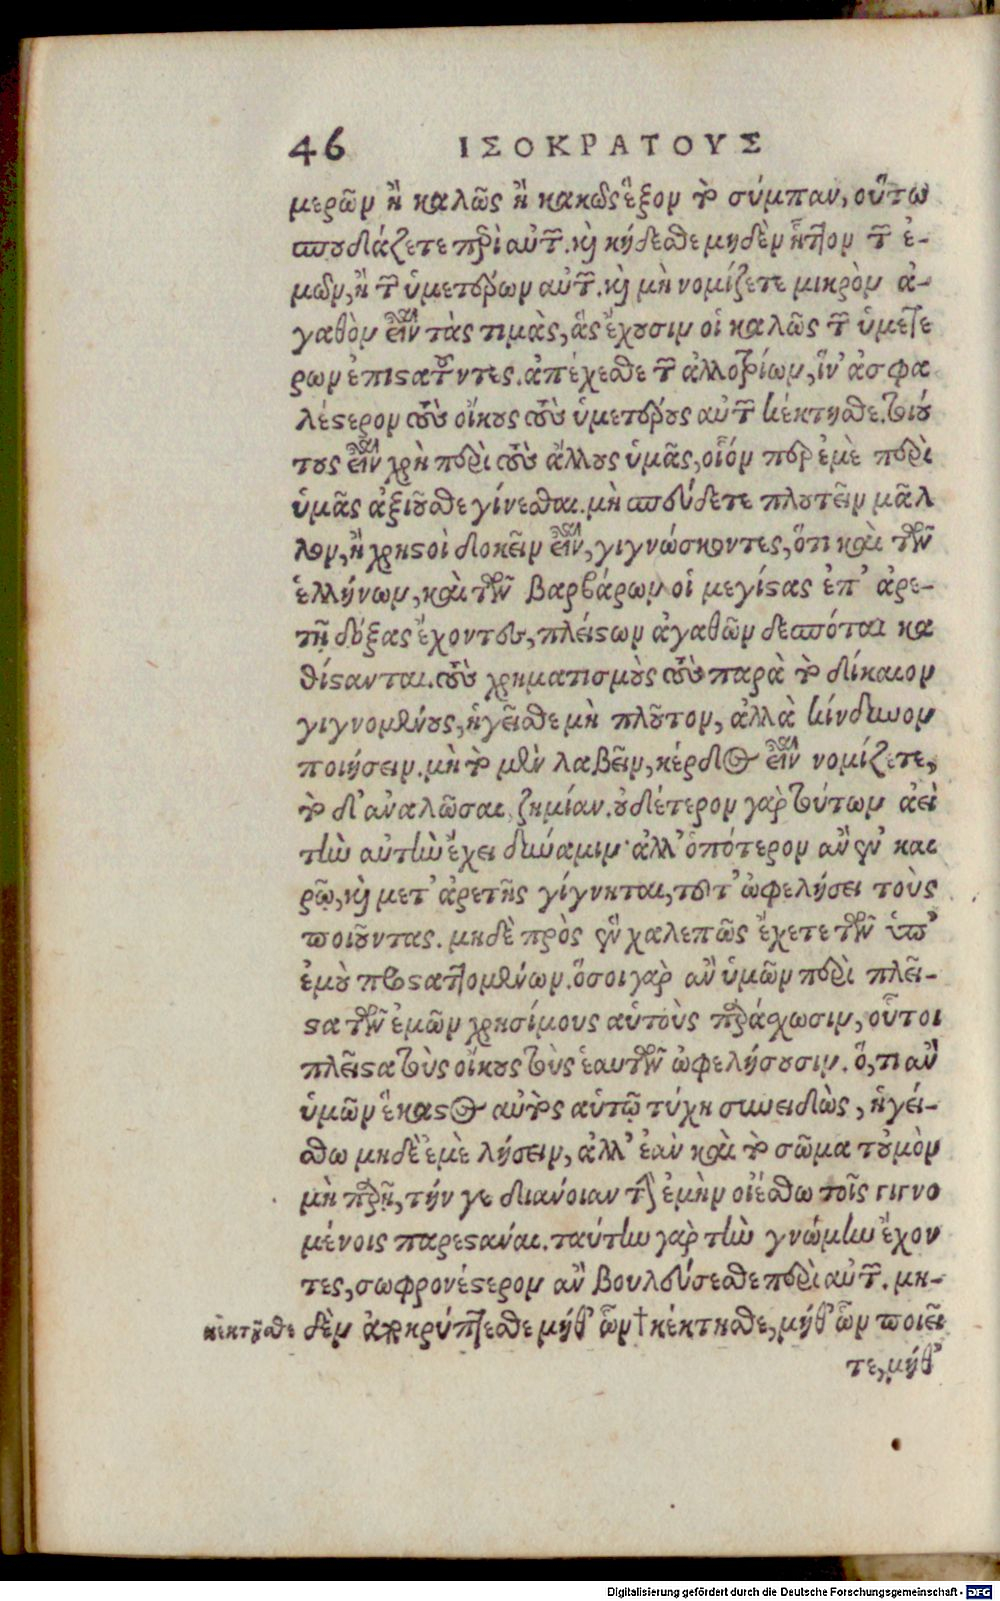 46 ΙΣΟΚΡΑΤΟΥΣ
μερῶν ἢ καλῶς ἢ κακῶς ἕξον τὸ σύμπαν, οὕτω
σπουδάζετε περὶ αὐτῶν. καὶ κήδεσθε μηδὲν ἧττον τῶν ἐ-
μῶν, ἢ τῶν ὑμετέρων αὐτῶν. καὶ μὴ νομίζετε μικρὸν ἀ-
γαθὸν εἶναι τὰς τιμὰς, ἃς ἔχουσιν οἱ καλῶς τῶν ὑμετέ
ρων ἐπιστατοῦντες. ἀπέχεσθε τῶν ἀλλοτρίων, ἵν' ἀσφα
λέστερον τοὺς οἴκους τοὺς ὑμετέρους αὐτῶν κέκτησθε. τοιού
τους εἶναι χρὴ περὶ τοὺς ἄλλους ὑμᾶς, οἷόν περ ἐμὲ περὶ
ὑμᾶς ἀξιοῦσθε γίνεσθαι. μὴ σπεύδετε πλουτεῖν μᾶλ
λον, ἢ χρηστοὶ δοκεῖν εἶναι, γιγνώσκοντες, ὅτι καὶ τῶν
ἑλλήνων, καὶ τῶν βαρβάρων οἱ μεγίστας ἐπ' ἀρε-
τῇ δόξας ἔχοντες, πλείστων ἀγαθῶν δεσπόται κα
θίστανται. τοὺς χρηματισμοὺς τοὺς παρὰ τὸ δίκαιον
γιγνομένους, ἡγεῖσθε μὴ πλοῦτον, ἀλλὰ κίνδυνον
ποιήσειν. μὴ τὸ μὲν λαβεῖν, κέρδος εἶναι νομίζετε,
τὸ δ' ἀναλῶσαι ζημίαν. οὐδέτερον γὰρ τούτων ἀεὶ
τὴν αὐτὴν ἔχει δύναμιν· ἀλλ' ὁπότερον ἂν ἐν και
ρῷ, καὶ μετ' ἀρετῆς γίγνηται, τοῦτ' ὠφελήσει τοὺς
ποιοῦντας. μηδὲ πρὸς ἓν χαλεπῶς ἔχετε τῶν ὑπ'
ἐμοῦ προσταττομένων. ὅσοι γὰρ ἂν ὑμῶν περὶ πλεῖ-
στα τῶν ἐμῶν χρησίμους αὑτοὺς παράσχωσιν, οὗτοι
πλεῖστα τοὺς οἴκους τοὺς ἑαυτῶν ὠφελήσουσιν. ὅ, τι ἂν
ὑμῶν ἕκαστος αὐτὸς αὑτῷ τύχῃ συνειδὼς, ἡγεί-
σθω μηδὲ ἐμὲ λήσειν, ἀλλ' ἐὰν καὶ τὸ σῶμα τοὐμὸν
μὴ παρῇ, τήν γε διάνοιαν τὴν ἐμὴν οἰέσθω τοῖς γιγνο
μένοις παρεστάναι. ταύτην γὰρ τὴν γνώμην ἔχον
τες, σωφρονέστερον ἂν βουλεύσεσθε περὶ αὐτῶν. μη-
κέκτησθε δὲν ἀποκρύπτεσθε μήθ' ὧν † κέκτησθε, μήθ' ὧν ποιεῖ
τε, μήθ'
Digitalisierung gefördert durch die Deutsche Forschungsgemeinschaft - DFG